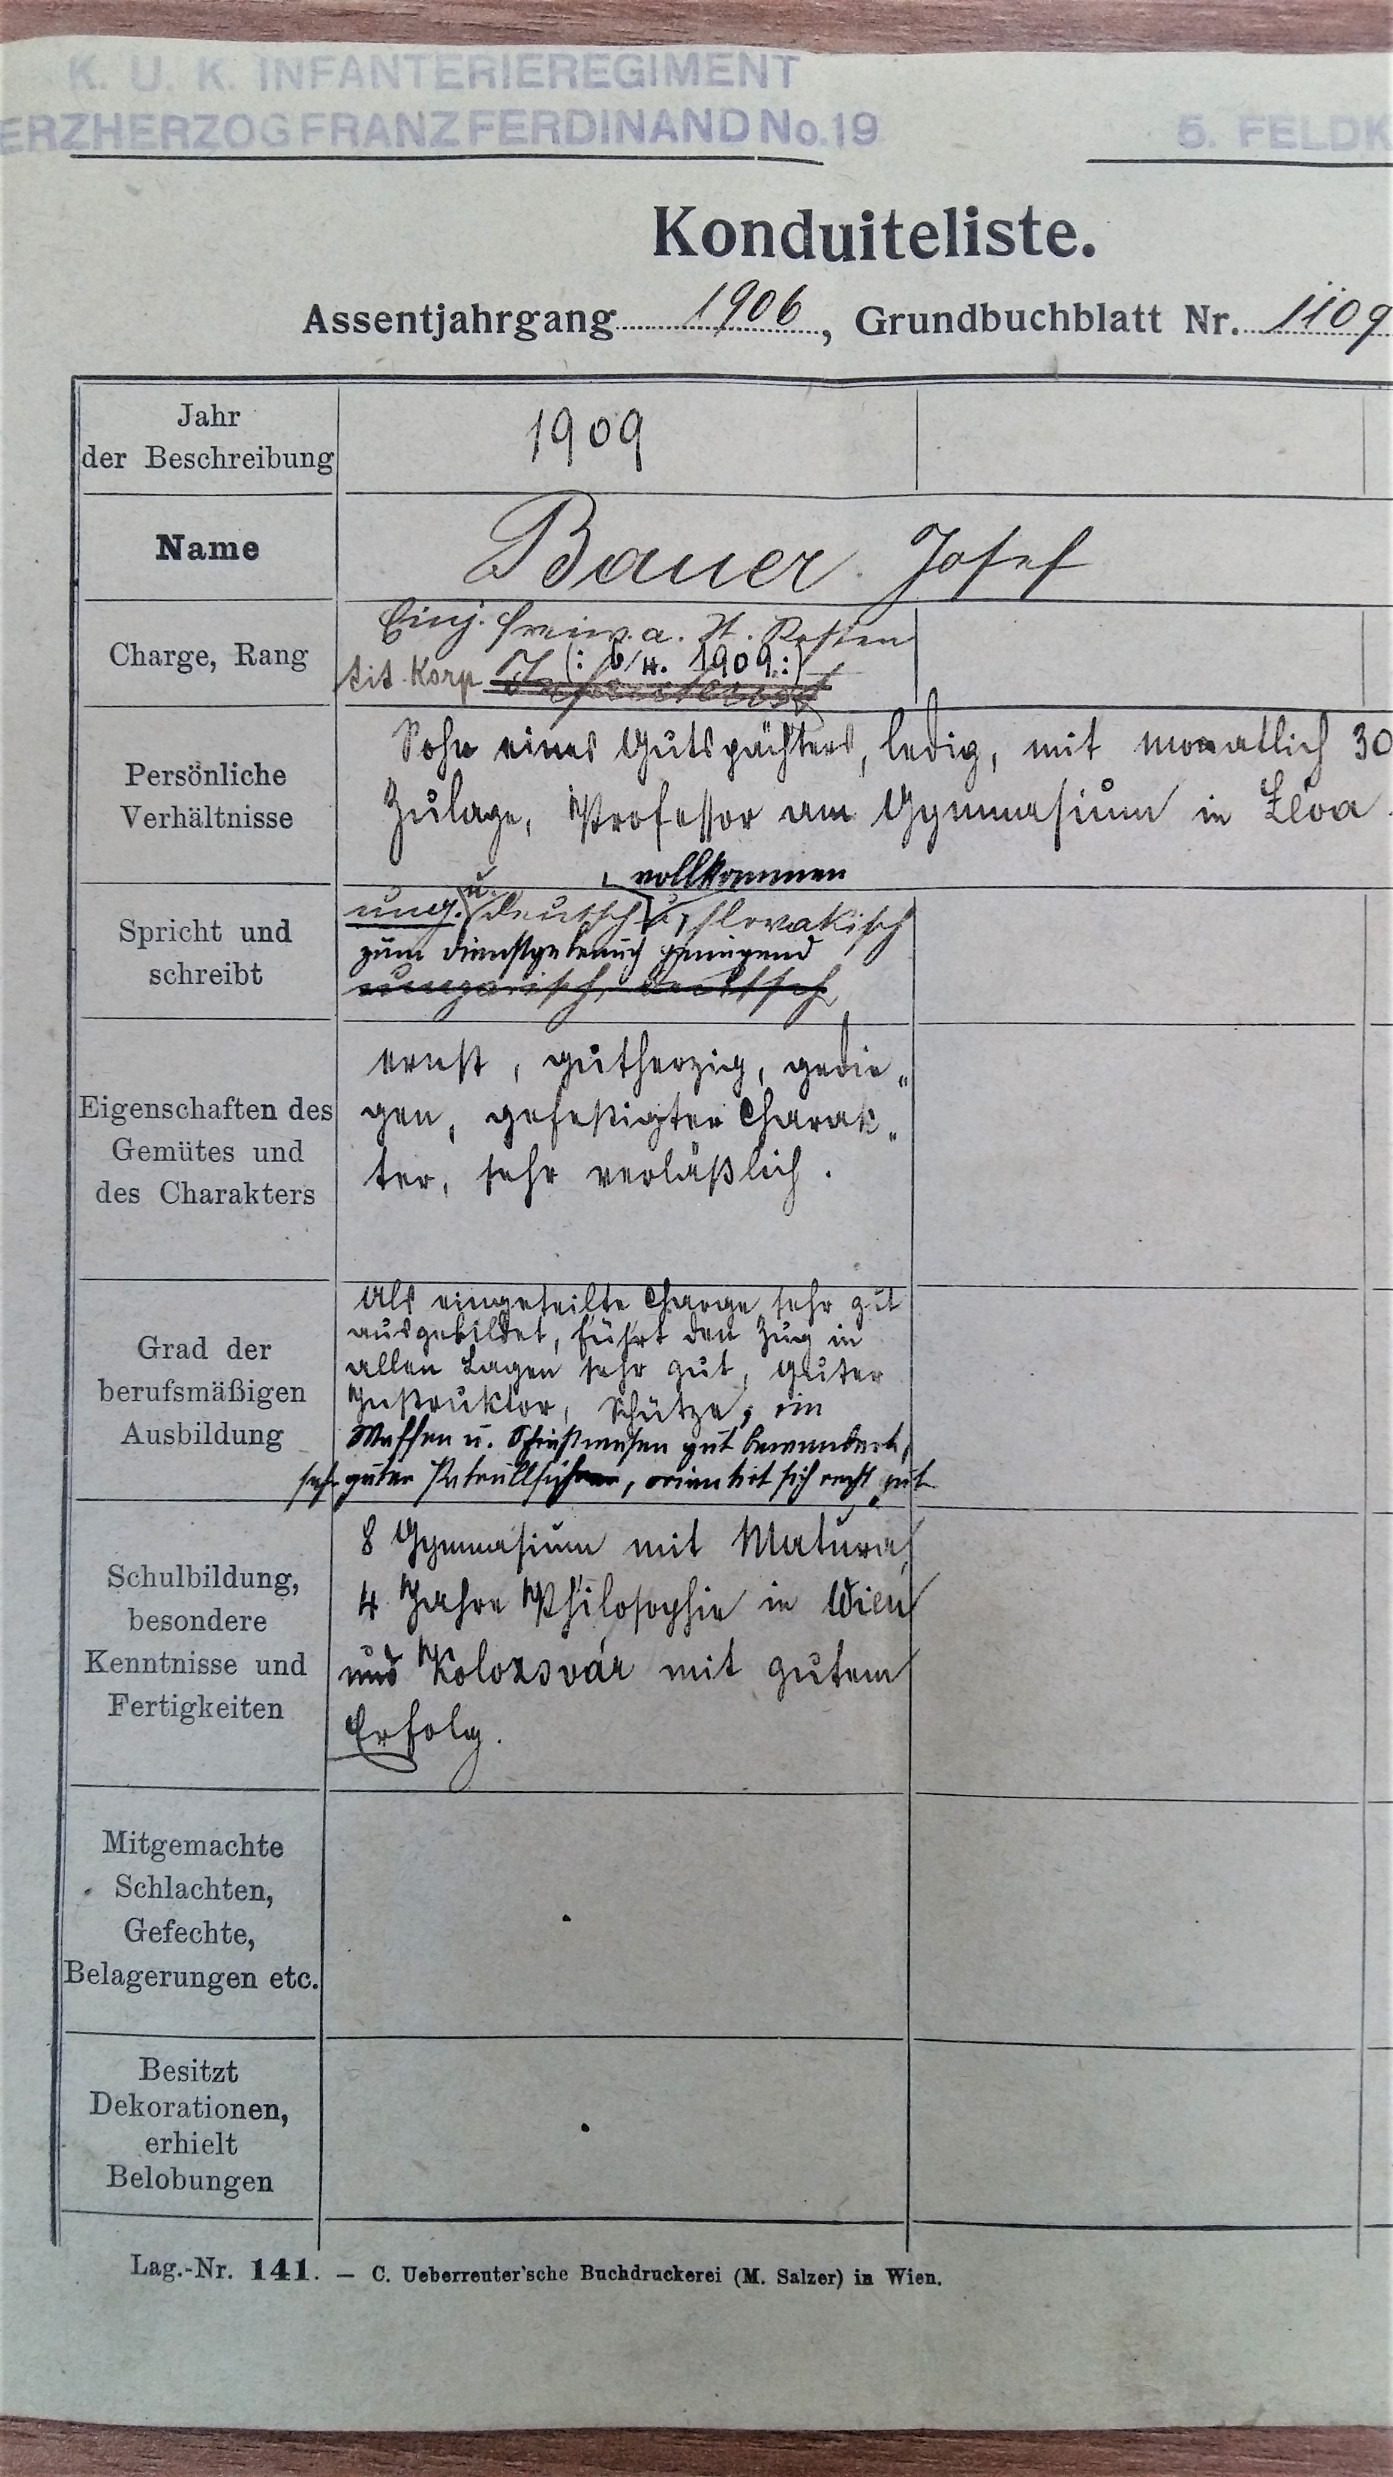 K. U. K. INFANTERIEREGIMENT
ERZHERZOG FRANZ FERDINAND No. 19
5. FELDK
Konduiteliste.
Assentjahrgang 1906, Grundbuchblatt Nr. 1109
Jahr
der Beschreibung
1909
Name
Bauer Josef
Charge, Rang
Einj. freiw. a. St. Kosten
(: 6/4. 1909 :)
tit. Korp. Infanterist
Persönliche
Verhältnisse
Sohn eines Gutspächters, ledig, mit monatlich 30
Zulage, Professor am Gymnasium in Léva.
Spricht und
schreibt
vollkommen
ung. u. deutsch, u. slovakisch
zum Dienstgebrauch genügend
ungarisch, deutsch
Eigenschaften des
Gemütes und
des Charakters
ernst, gutherzig, gedie„
gen, gefestigter Charak„
ter, sehr verläßlich.
Grad der
berufsmäßigen
Ausbildung
Als eingeteilte Charge sehr gut
ausgebildet, führt den Zug in
allen Lagen sehr gut, guter
Instruktor, Schütze, im
Waffen u. Schießwesen gut bewandert,
sehr guter Patrullführer, orientirt sich recht gut
Schulbildung,
besondere
Kenntnisse und
Fertigkeiten
8 Gymnasium mit Matura,
4 Jahre Philosophie in Wien
und Kolozsvár mit gutem
Erfolg.
Mitgemachte
Schlachten,
Gefechte,
Belagerungen etc.
Besitzt
Dekorationen,
erhielt
Belobungen
Lag.-Nr. 141. — C. Ueberreuter'sche Buchdruckerei (M. Salzer) in Wien.